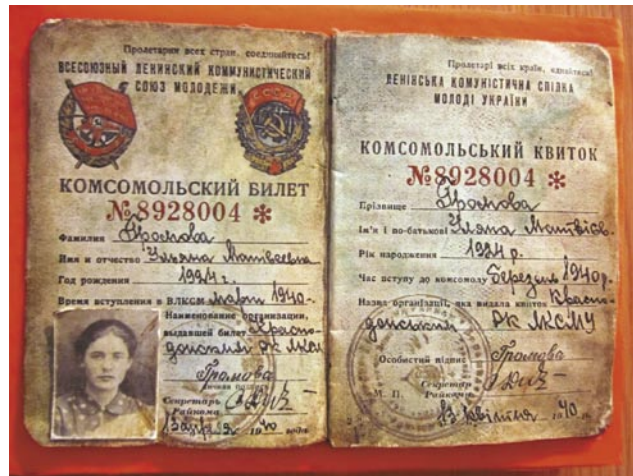 Пролетарии всех стран, соединяйтесь!
ВСЕСОЮЗНЫЙ ЛЕНИНСКИЙ КОММУНИСТИЧЕСКИЙ
СОЮЗ МОЛОДЕЖИ
КОМСОМОЛЬСКИЙ БИЛЕТ
№8928004 *
Фамилия Громова
Имя и отчество Ульяна Матвеевна
Год рождения 1924 г.
Время вступления в ВЛКСМ март 1940
Наименование организации,
выдавшей билет Красно-
донский РК ЛКСМУ
Громова
Личная подпись
Секретарь
Райкома
13 апреля 1940 года
Пролетарі всіх країн, єднайтеся!
ЛЕНІНСЬКА КОМУНІСТИЧНА СПІЛКА
МОЛОДІ УКРАЇНИ
КОМСОМОЛЬСЬКИЙ КВИТОК
№8928004 *
Прізвище Громова
Ім'я і по-батькові Уляна Матвіїв.
Рік народження 1924 р.
Час вступу до комсомолу Березень 1940р.
Назва організації, яка видала квиток Красно-
донський РК ЛКСМУ
Особистий підпис Громова
М. П. Секретар
Райкому
13 квітня 1940 р.